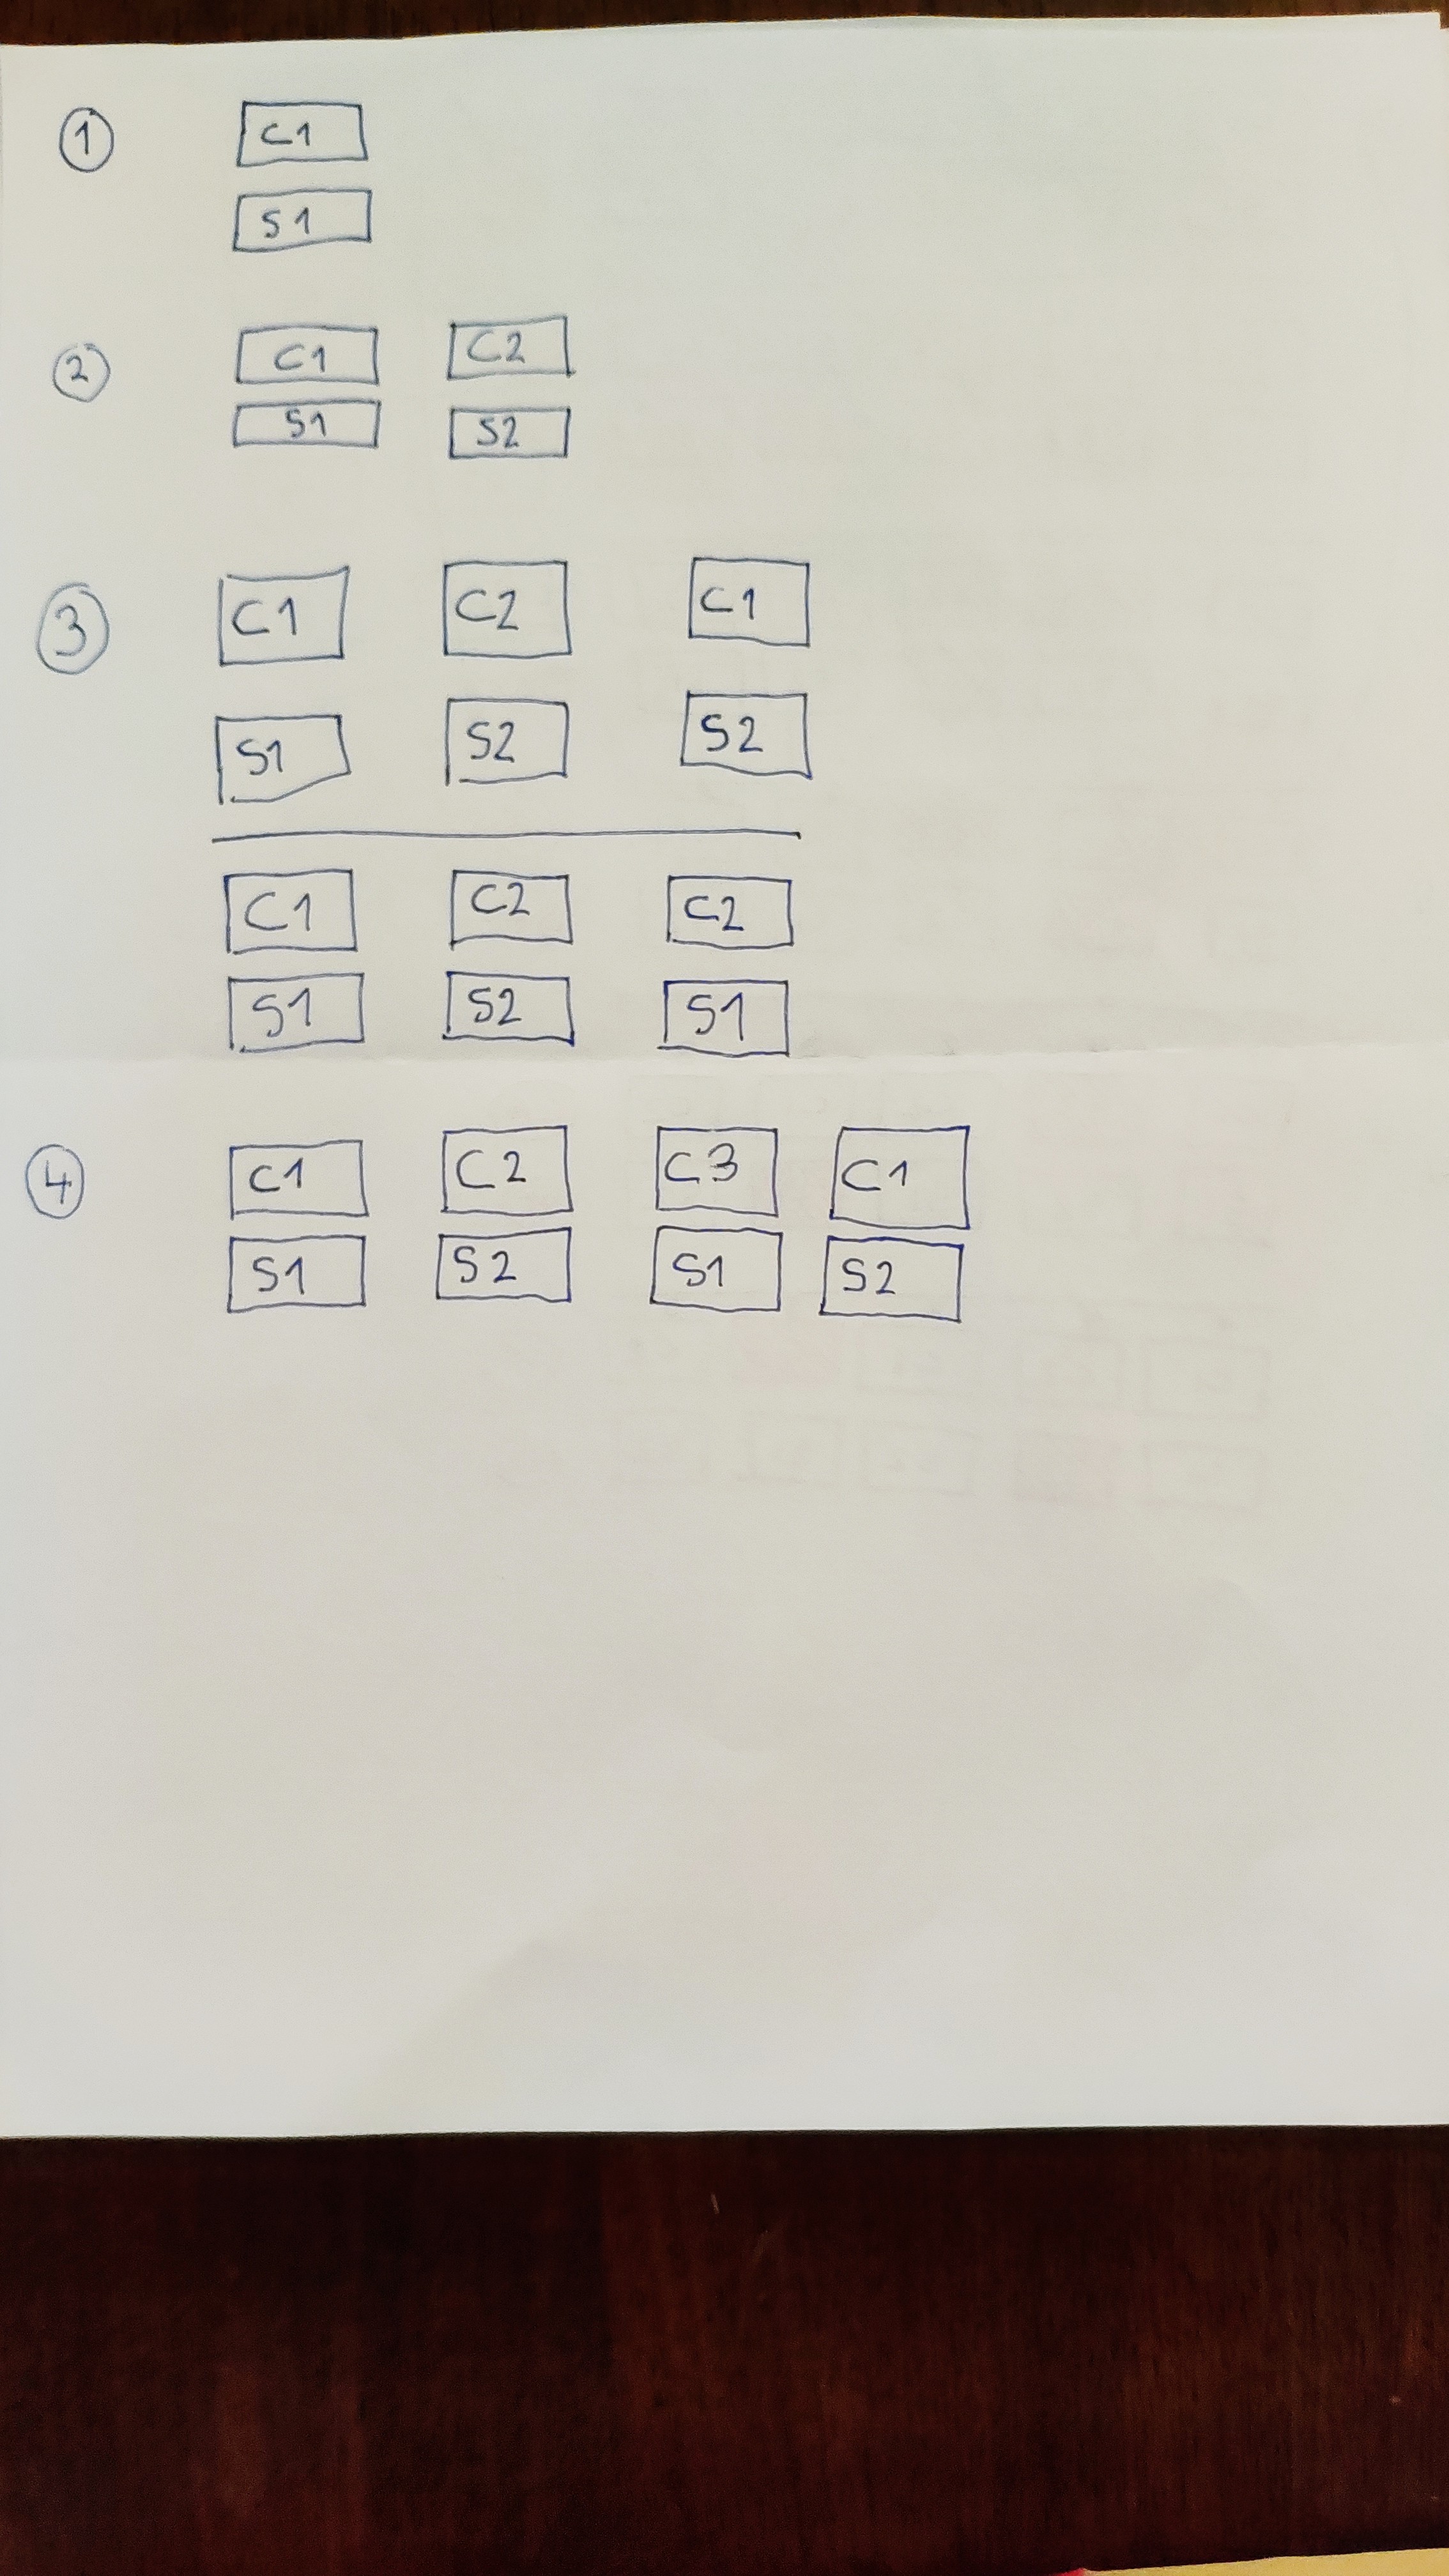 1 C1
S1
2 C1 C2
S1 S2
3 C1 C2 C1
S1 S2 S2
C1 C2 C2
S1 S2 S1
4 C1 C2 C3 C1
S1 S2 S1 S2